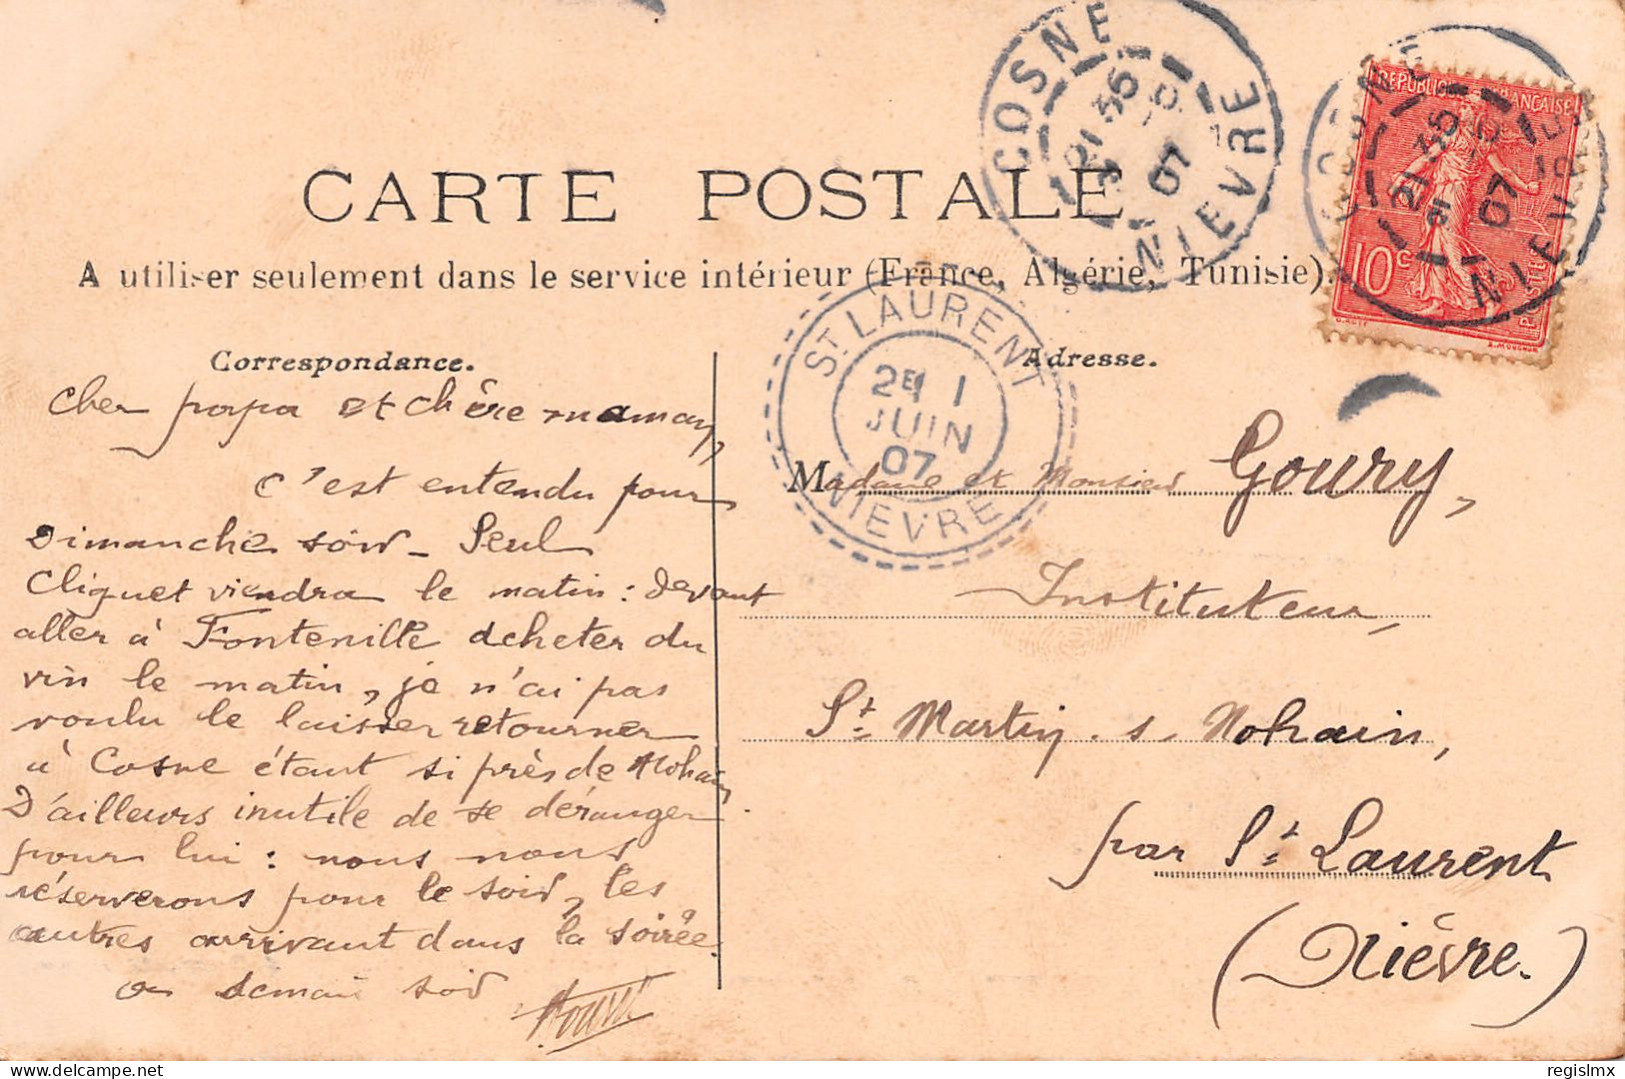 CARTE POSTALE
A utiliser seulement dans le service intérieur (France, Algérie, Tunisie).
Correspondance.
Adresse.
COSNE
21 35
31 -5
07
NIEVRE
COSNE
21 35
31 -5
07
NIEVRE
REPUBLIQUE FRANÇAISE
10c
POSTES
ST LAURENT
2E 1
JUIN
07
NIEVRE
Cher papa et chère maman,
c'est entendu pour
Dimanche soir - Seul
Cliquet viendra le matin : devant
aller à Fontenille acheter du
vin le matin, je n'ai pas
voulu le laisser retourner
à Cosne étant si près de Nohain
D'ailleurs inutile de se déranger
pour lui : nous nous
réserverons pour le soir, les
autres arrivant dans la soirée.
a demain soir
Madame et Monsieur Goury,
Instituteur,
St Martin s. Nohain,
par St Laurent
(Nièvre.)
regislmx